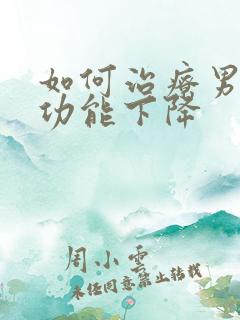 如何治疗男
功能下降
周小云
未经同意禁止转载